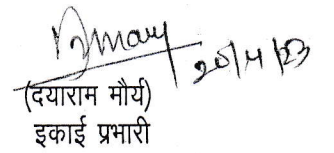 20/4/23
(दयाराम मौर्य)
इकाई प्रभारी